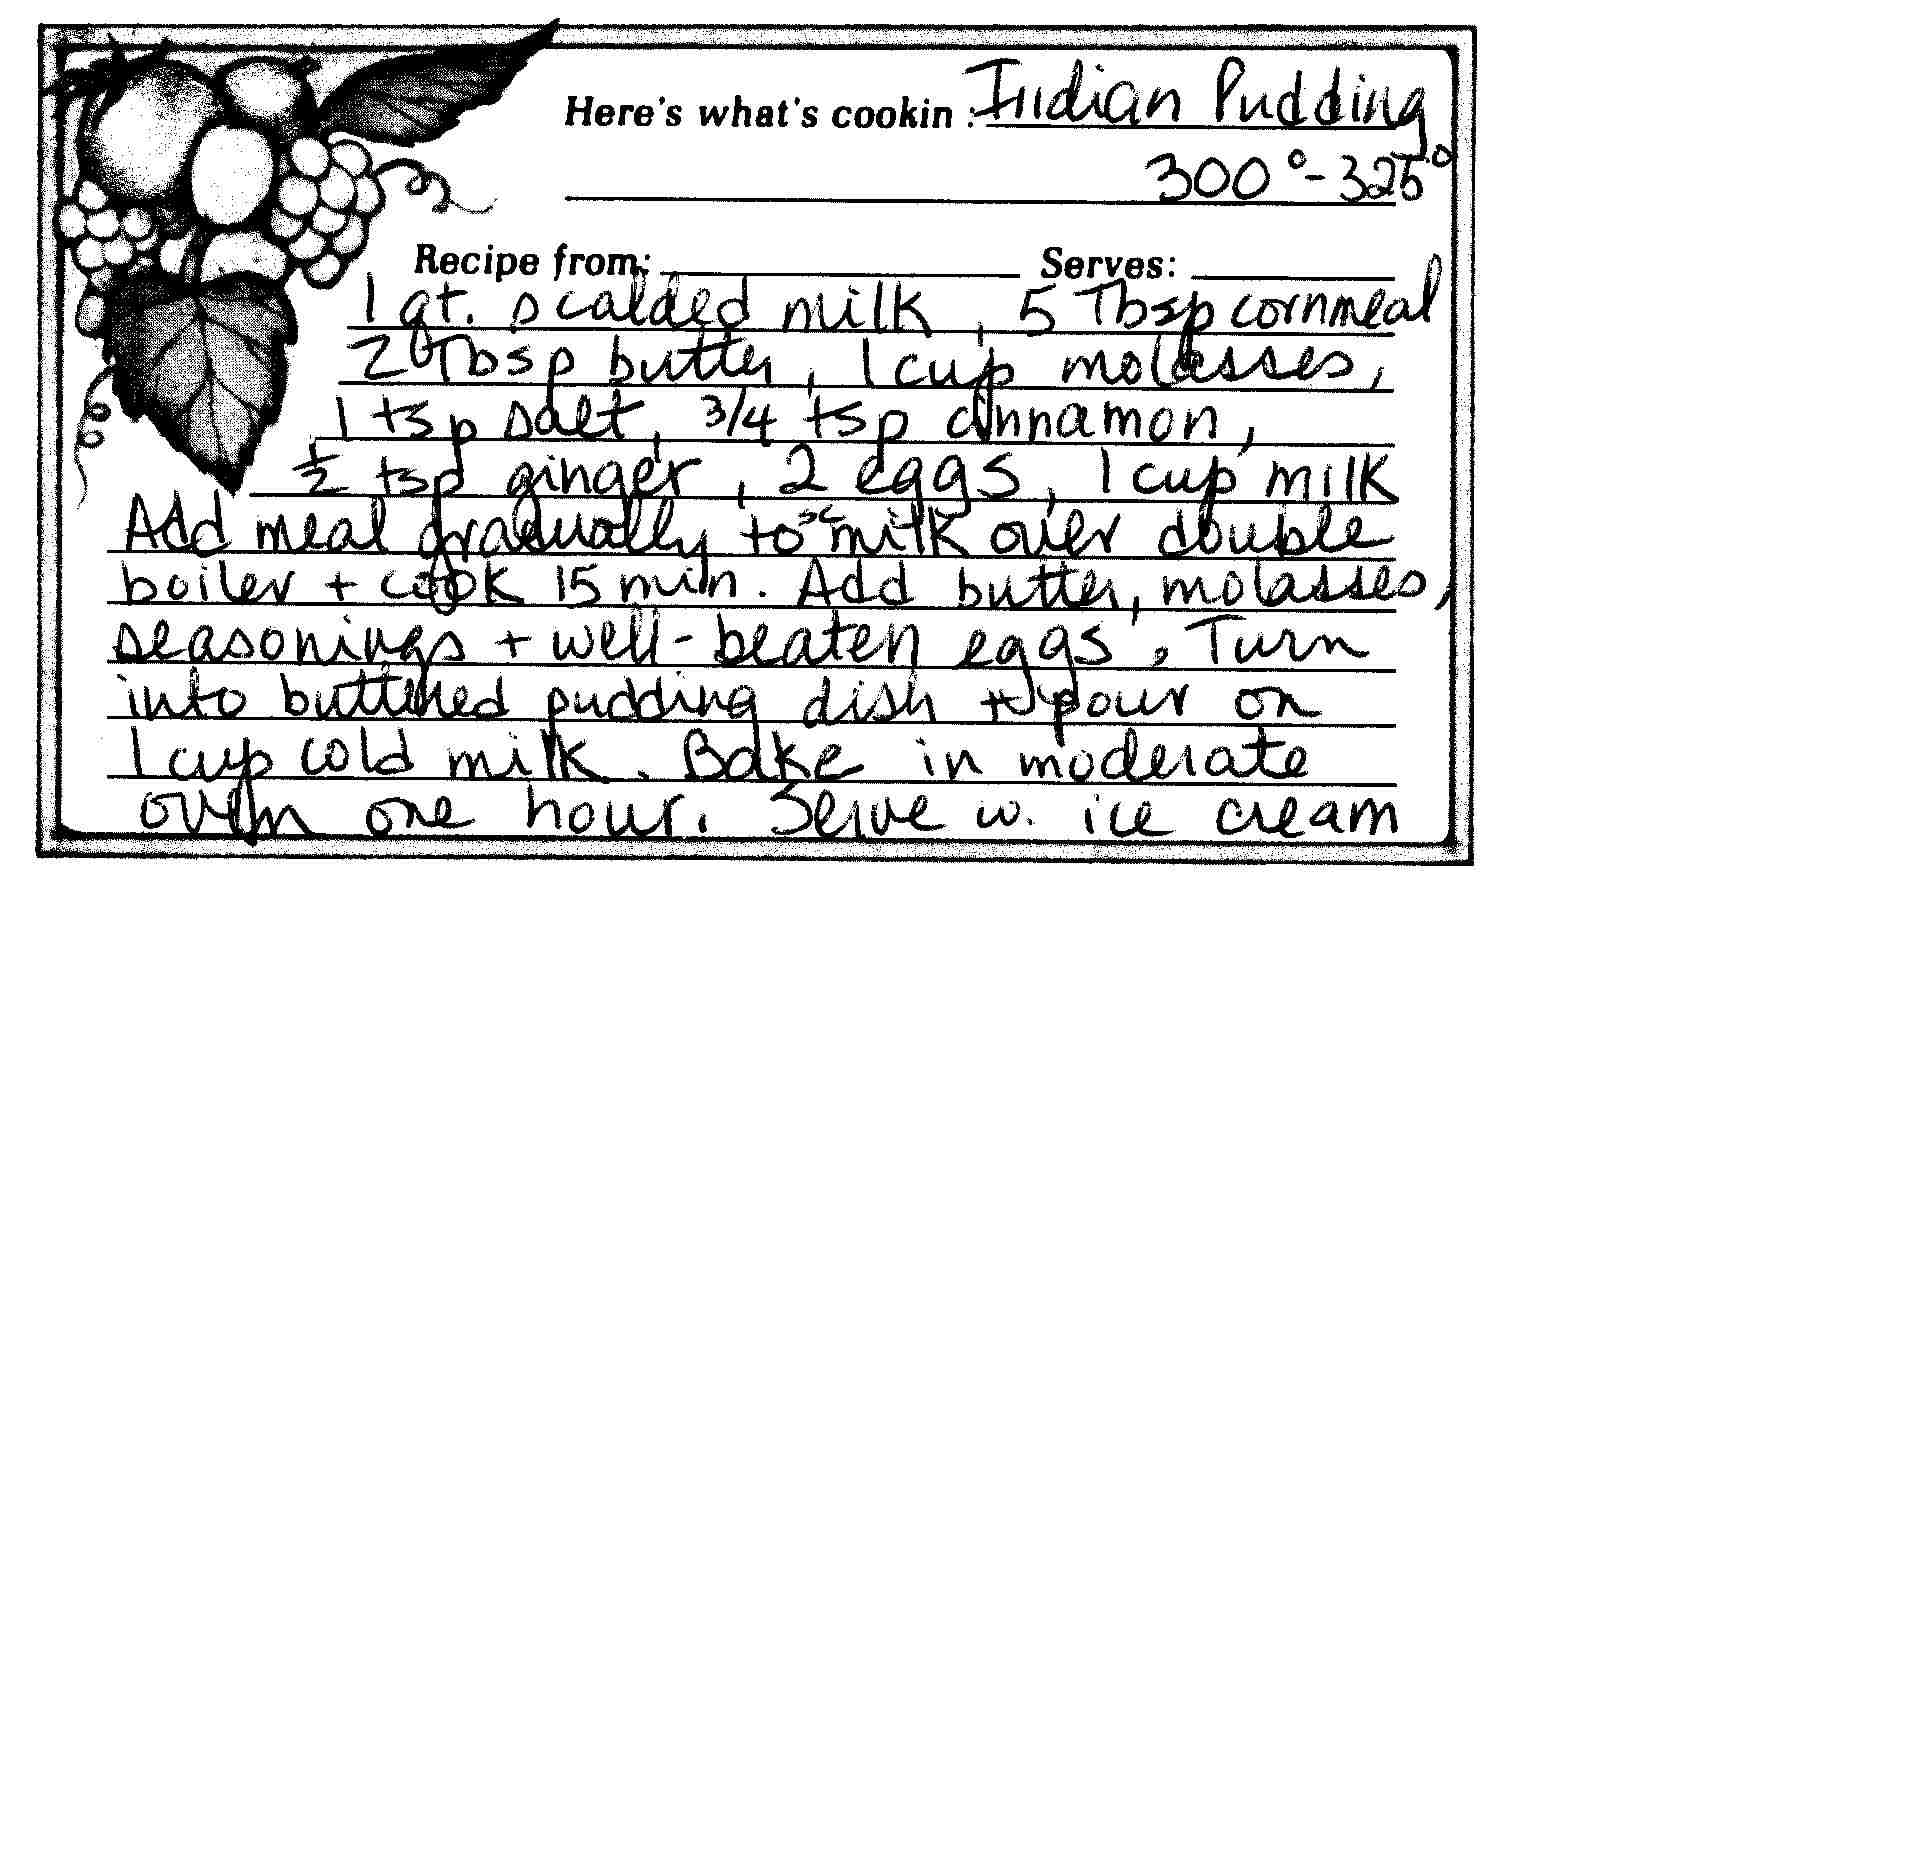 Here's what's cookin: Indian Pudding
300° - 325°
Recipe from: Serves:
1 qt. scalded milk, 5 Tbsp cornmeal
2 Tbsp butter, 1 cup molasses,
1 tsp salt, 3/4 tsp cinnamon,
1/2 tsp ginger, 2 eggs, 1 cup milk
Add meal gradually to sc milk over double
boiler + cook 15 min. Add butter, molasses,
seasonings + well-beaten eggs. Turn
into buttered pudding dish + pour on
1 cup cold milk. Bake in moderate
oven one hour. Serve w. ice cream